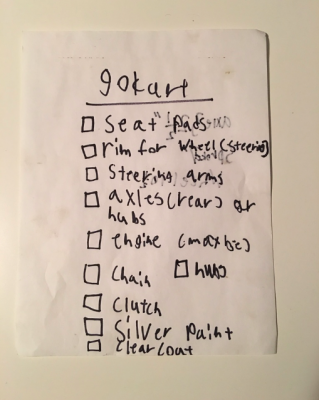 gokart
□ Seat pads
□ rim for wheel (steering)
□ Steering arms
□ axles (rear) or
hubs
□ engine (maybe)
□ Chain □ hubs
□ Clutch
□ Silver Paint
□ Clear Coat